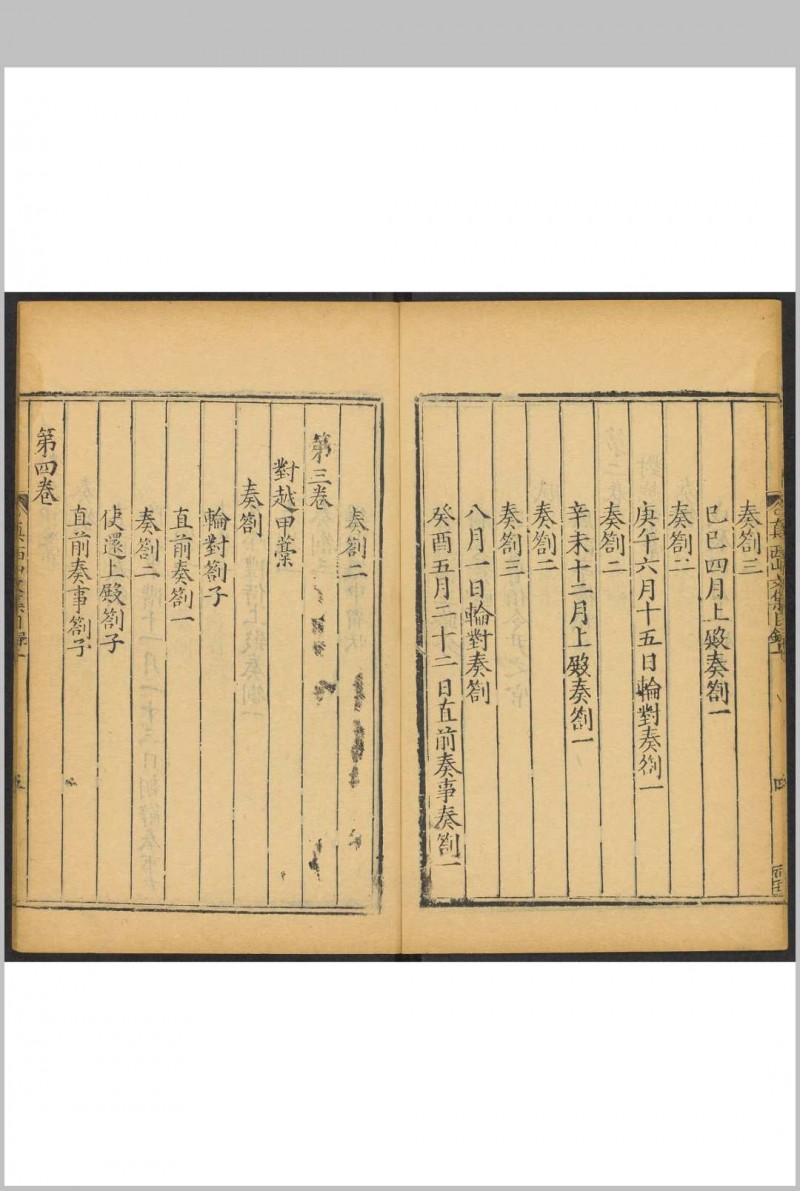 奏劄三
已巳四月上殿奏劄一
奏劄二
庚午六月十五日輪對奏劄一
奏劄二
辛未十二月上殿奏劄一
奏劄二
奏劄三
八月一日輪對奏劄
癸酉五月二十二日直前奏事奏劄一
奏劄二
第三卷
對越甲藁
奏劄
輪對劄子
直前奏劄一
奏劄二
使還上殿劄子
直前奏事劄子
第四卷
真西山文集目錄
四